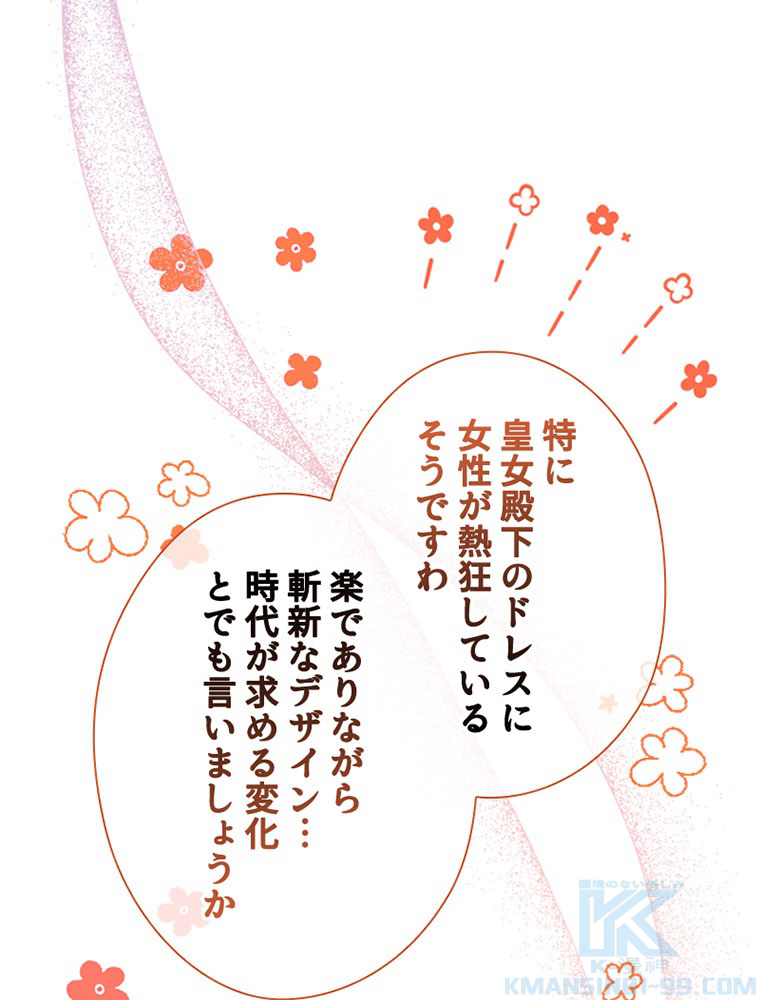 特に
皇女殿下のドレスに
女性が熱狂している
そうですわ
楽でありながら
斬新なデザイン…
時代が求める変化
とでも言いましょうか
K漫神